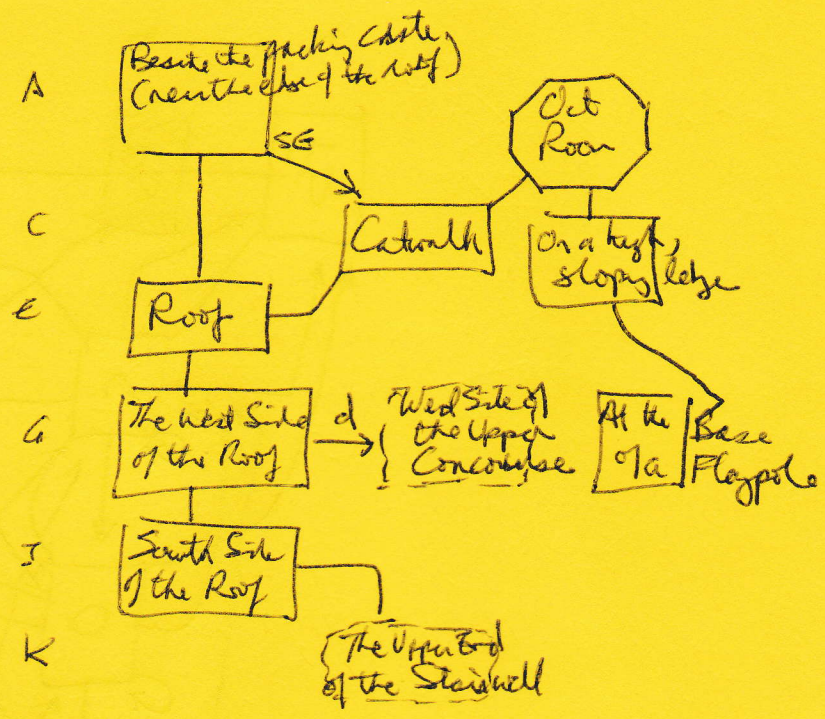 A
Beside the packing crate,
(near the edge of the roof)
SE
Oct
Room
C
Catwalk
On a high,
sloping ledge
E
Roof
G
The West Side
of the Roof
d
West Side of
the Upper
Concourse
At the Base
of a Flagpole
I
South Side
of the Roof
K
The Upper End
of the Stairwell